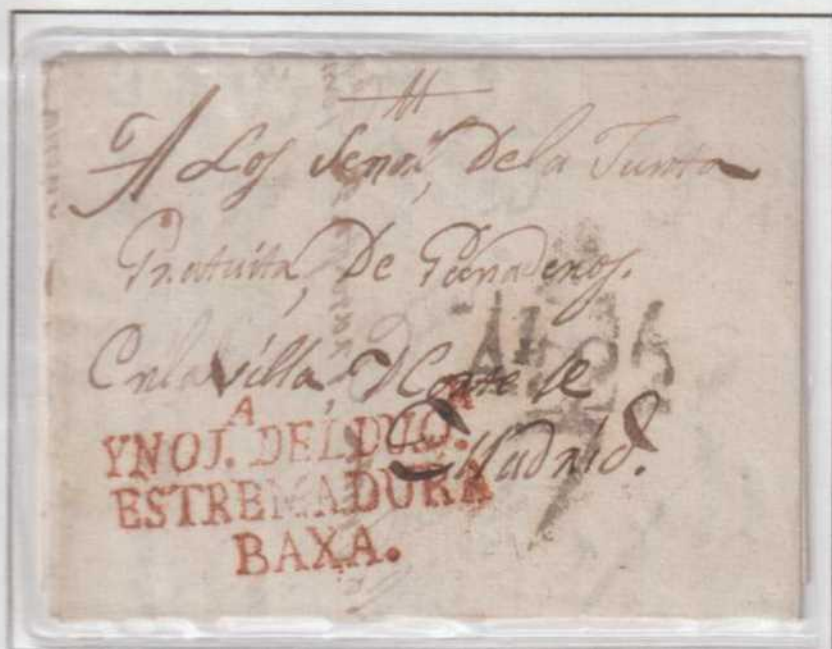 A Los Señors, De la Junta
Gratuita, De Panaderos.
En la villa, y Corte de
Madrid.
YNOJA. DEL DUQ.E
ESTREMADURA
BAXA.